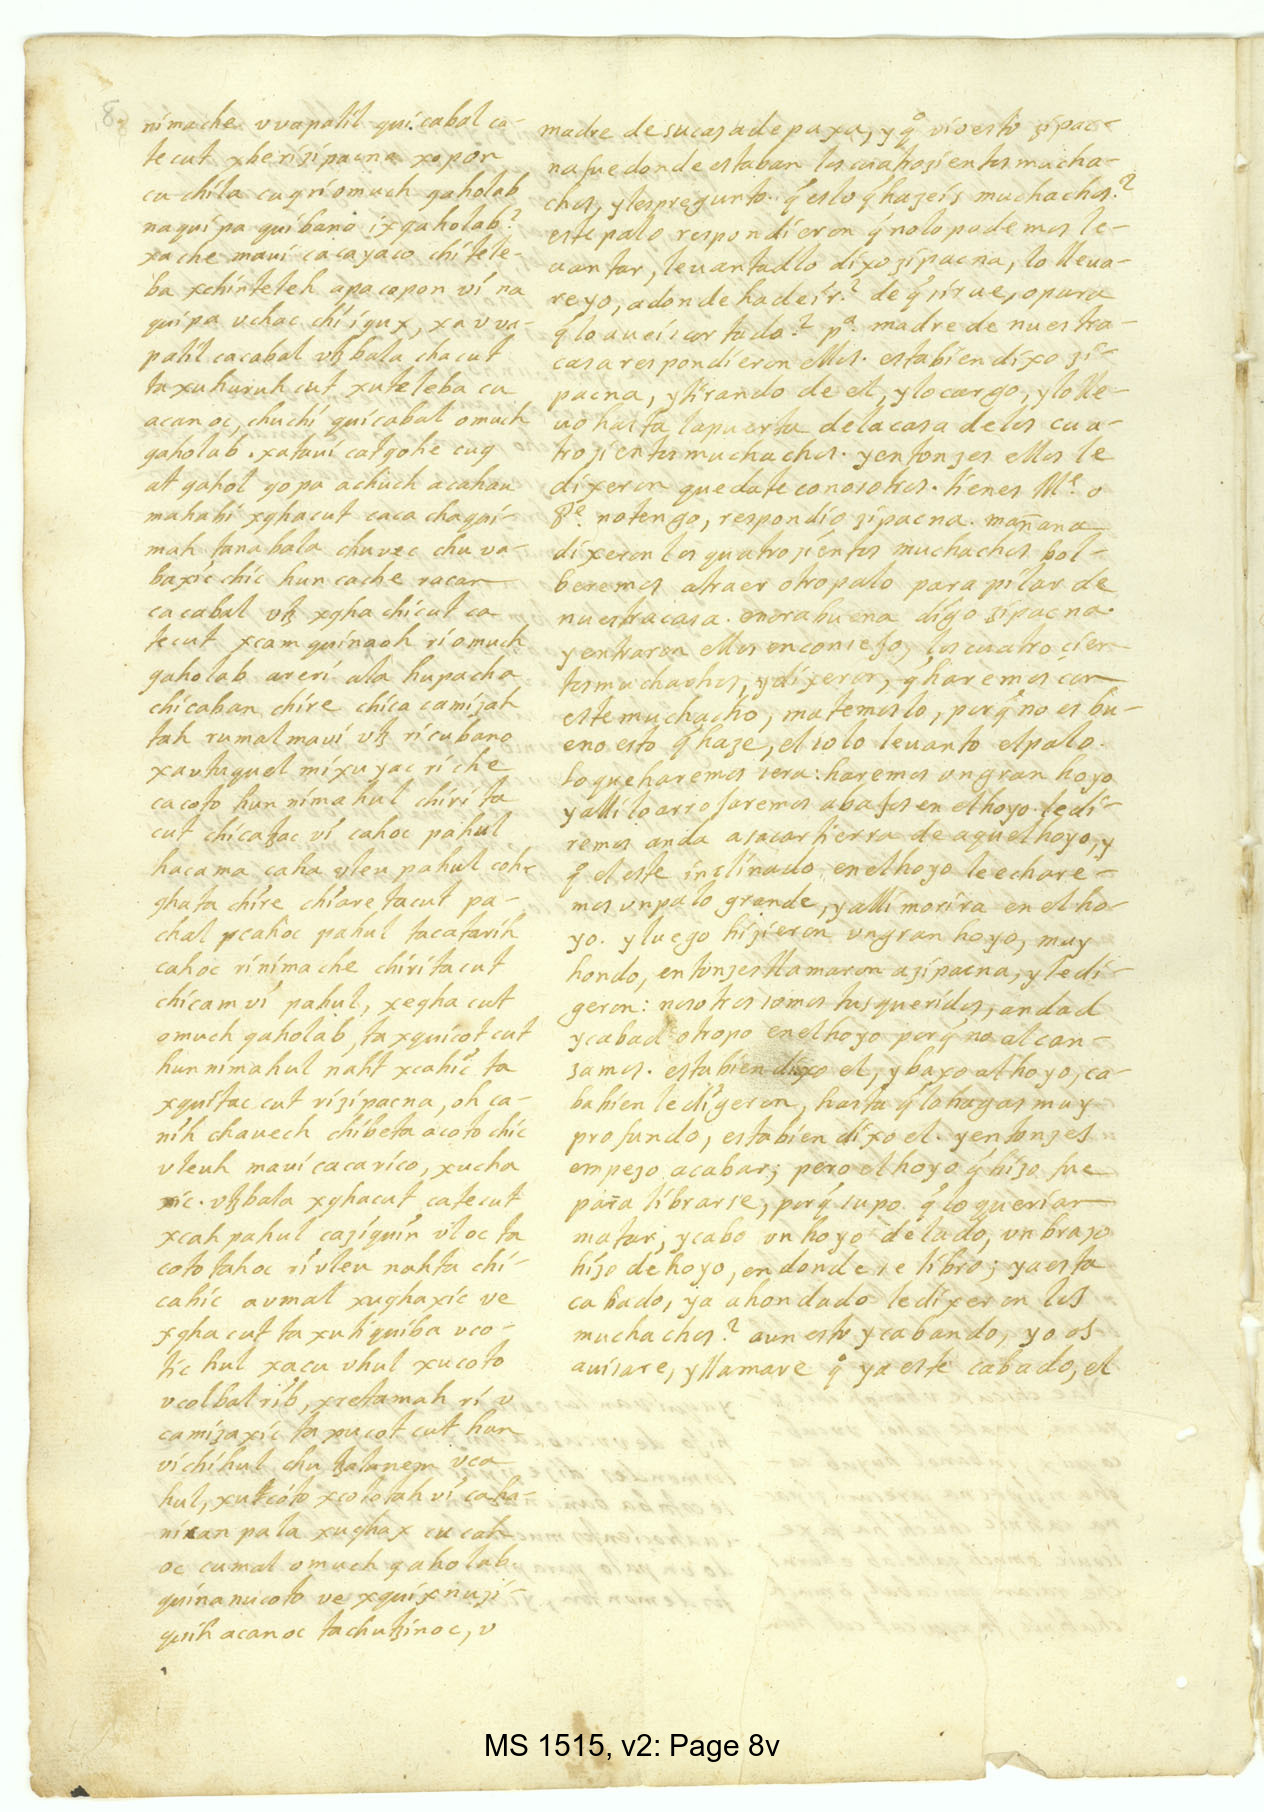 8
nimache vvapalil qui cabal ca-
tecut xberi zipacna xopon
cu chila cuq ri omuch qaholab
naqui pa quibano ix qaholab?
xa che maui cacayaco chi tele-
ba xchinteleh apacopon ví na
quipa vchac chi iqux, xa v va-
palil cacabal vtz bala chacut
ta xuhuruh cut xuteleba cu
acanoc, chuchi quicabal omuch
qaholab. xataui catqohe cuq
at qahol qo pa achuch acahau
mahabi xqhacut caca chaqui-
mah tanabala chuvec chu va-
baxic chic hun cache racan
cacabal vtz xqha chicut ca
tecut xcam quinaoh ri omuch
qaholab areri ala hupacha
chicaban chire chica camizah
tah rumal maui vtz ri cubano
xavtuquel mixuyac ri che
cacoto hun nima hul chiri ta
cut chicatzac ví cahoc pahul
hacama caha vleu pahul coh-
qhata chire chiare tacut pa-
chal pcahoc pahul tacatarih
cahoc ri nimache chiri tacut
chicam ví pahul, xeqha cut
omuch qaholab, ta xquicot cut
hun nimahul naht xcahic ta
xquitac cut ri zipacna, oh ca-
nih chauech chibeta acoto chic
vleuh maui cacarico, xucha
xic. vtz bala xqhacut catecut
xcah pahul caziquin vloc ta
coto tahoc ri vleu nahta chi-
cahic aumal xuqhaxic ve
xqha cut ta xutiquiba vco-
tic hul xacu vhul xucoto
vcolbal rib, xretamah ri v
camizaxic ta xucot cut hun
vi chi hul chu tzalanem vca
hul, xutcoto xcolotah ví caha-
nixan pala xuqhax cu cah-
oc cumal omuch qaholab
quina nucoto ve xquixnuzi-
quih acanoc tachutzinoc, v
madre de su casa de paxa, y qº vio esto zipac-
na fue donde estaban los cuatrozientos mucha-
chos, y les pregunto. q̃ es lo q̃ hazeis muchachos?
este palo respondieron q̃ no lo podemos le-
uantar, leuantadlo dixo zipacna, lo lleua-
re yo, adonde ha de ir? de q̃ sirue, o para
q̃ lo aueis cortado? pª. madre de nuestra-
casa respondieron ellos. esta bien dixo zi-
pacna, y tirando de el, y lo cargo, y lo lle-
uo hasta la puerta de la casa de los cua-
trozientos muchachos. y entonzes ellos le
dixeron quedate con osotros. tienes Mᵉ. o
Pᵉ. no tengo, respondio zipacna. mañana
dixeron los quatrozientos muchachos bol-
beremos a traer otro palo para pilar de
nuestra casa. enorabuena digo zipacna.
y entraron ellos en consejo, los cuatro cien-
tos muchachos, y dixeron, q̃ haremos con
este muchacho, matemoslo, porq̃ no es bu-
eno esto q̃ haze, el solo leuanto el palo.
lo que haremos sera: haremos vn gran hoyo
y alli lo arrojaremos abajo en el hoyo. le di-
remos anda a sacar tierra de aquel hoyo, y
qº el este inclinado en el hoyo le echare-
mos vn palo grande, y alli morira en el ho-
yo. y luego hizieron vn gran hoyo, muy
hondo, entonzes llamaron a zipacna, y le di-
geron: nosotros somos tus queridos, andad
y cabad otro po en el hoyo porq̃ no alcan-
zamos. esta bien dixo el, y baxo al hoyo, ca-
ba bien le digeron, hasta q̃ lo hagas muy
profundo, esta bien dixo el. y entonzes
empezo a cabar; pero el hoyo q̃ hizo fue
para librarse, porq̃ supo q̃ lo querian
matar, y cabo vn hoyo de lado, vn brazo
hizo de hoyo, en donde se libro; ya esta
cabado, ya ahondado le dixeron los
muchachos? aun estoy cabando, yo os
auisare, y llamare qº ya este cabado, el
MS 1515, v2: Page 8v